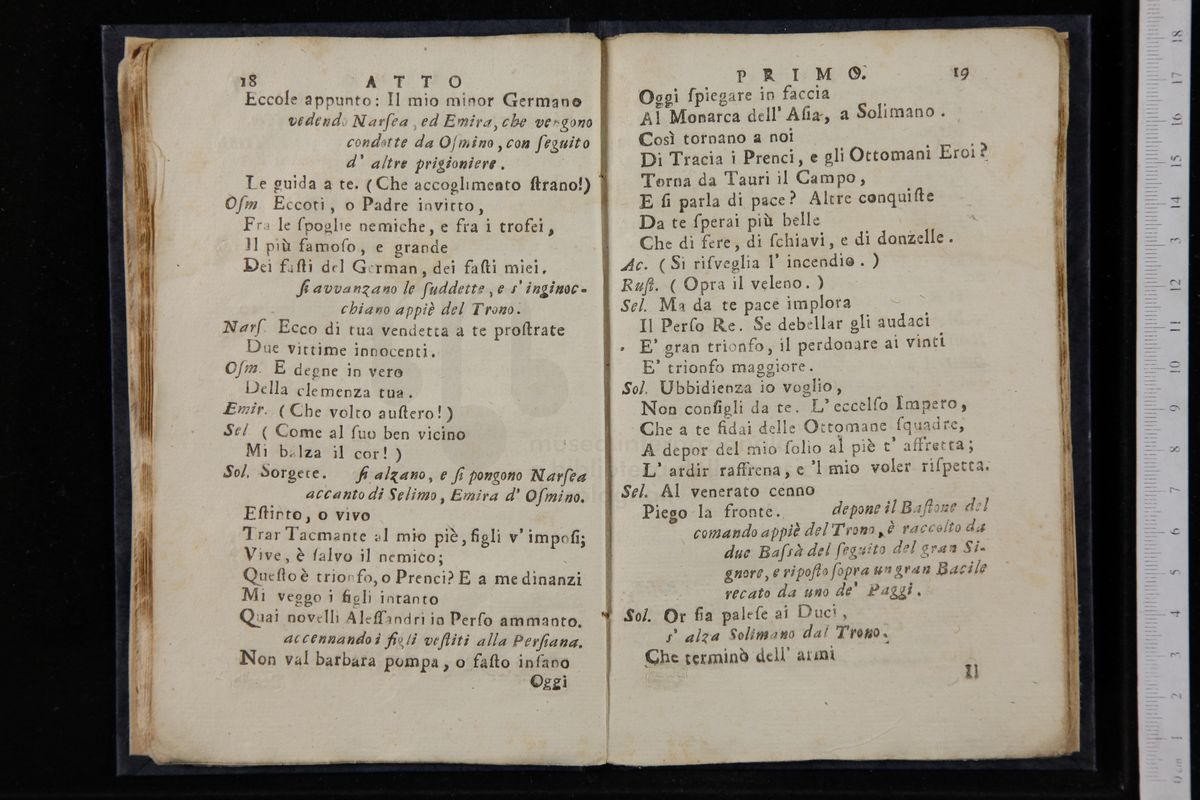 18 ATTO
Eccole appunto: Il mio minor Germano
vedendo Narſea, ed Emira, che vengono
condotte da Oſmino, con ſeguito
d' altre prigioniere.
Le guida a te. (Che accoglimento ſtrano!)
Oſm Eccoti, o Padre invitto,
Fra le ſpoglie nemiche, e fra i trofei,
Il più famoſo, e grande
Dei faſti del German, dei faſti miei.
ſi avvanzano le ſuddette, e s' inginoc-
chiano appiè del Trono.
Narſ. Ecco di tua vendetta a te proſtrate
Due vittime innocenti.
Oſm. E degne in vero
Della clemenza tua.
Emir. (Che volto auſtero!)
Sel (Come al ſuo ben vicino
Mi balza il cor!)
Sol. Sorgete. ſi alzano, e ſi pongono Narſea
accanto di Selimo, Emira d' Oſmino.
Eſtinto, o vivo
Trar Tacmante al mio piè, figli v' impoſi;
Vive, è ſalvo il nemico;
Queſto è trionfo, o Prenci? E a me dinanzi
Mi veggo i figli intanto
Quai novelli Aleſſandri in Perſo ammanto.
accennando i figli veſtiti alla Perſiana.
Non val barbara pompa, o faſto inſano
Oggi
PRIMO. 19
Oggi ſpiegare in faccia
Al Monarca dell' Aſia, a Solimano.
Così tornano a noi
Di Tracia i Prenci, e gli Ottomani Eroi?
Torna da Tauri il Campo,
E ſi parla di pace? Altre conquiſte
Da te ſperai più belle
Che di fere, di ſchiavi, e di donzelle.
Ac. (Si riſveglia l' incendio.)
Ruſt. (Opra il veleno.)
Sel. Ma da te pace implora
Il Perſo Re. Se debellar gli audaci
E' gran trionfo, il perdonare ai vinti
E' trionfo maggiore.
Sol. Ubbidienza io voglio,
Non conſigli da te. L' eccelſo Impero,
Che a te fidai delle Ottomane ſquadre,
A depor del mio ſolio al piè t' affretta;
L' ardir raffrena, e 'l mio voler riſpetta.
Sel. Al venerato cenno
Piego la fronte. depone il Baſtone del
comando appiè del Trono, è raccolto da
due Baſsà del ſeguito del gran Si-
gnore, e ripoſto ſopra un gran Bacile
recato da uno de' Paggi.
Sol. Or ſia paleſe ai Duci,
s' alza Solimano dal Trono.
Che terminò dell' armi
Il